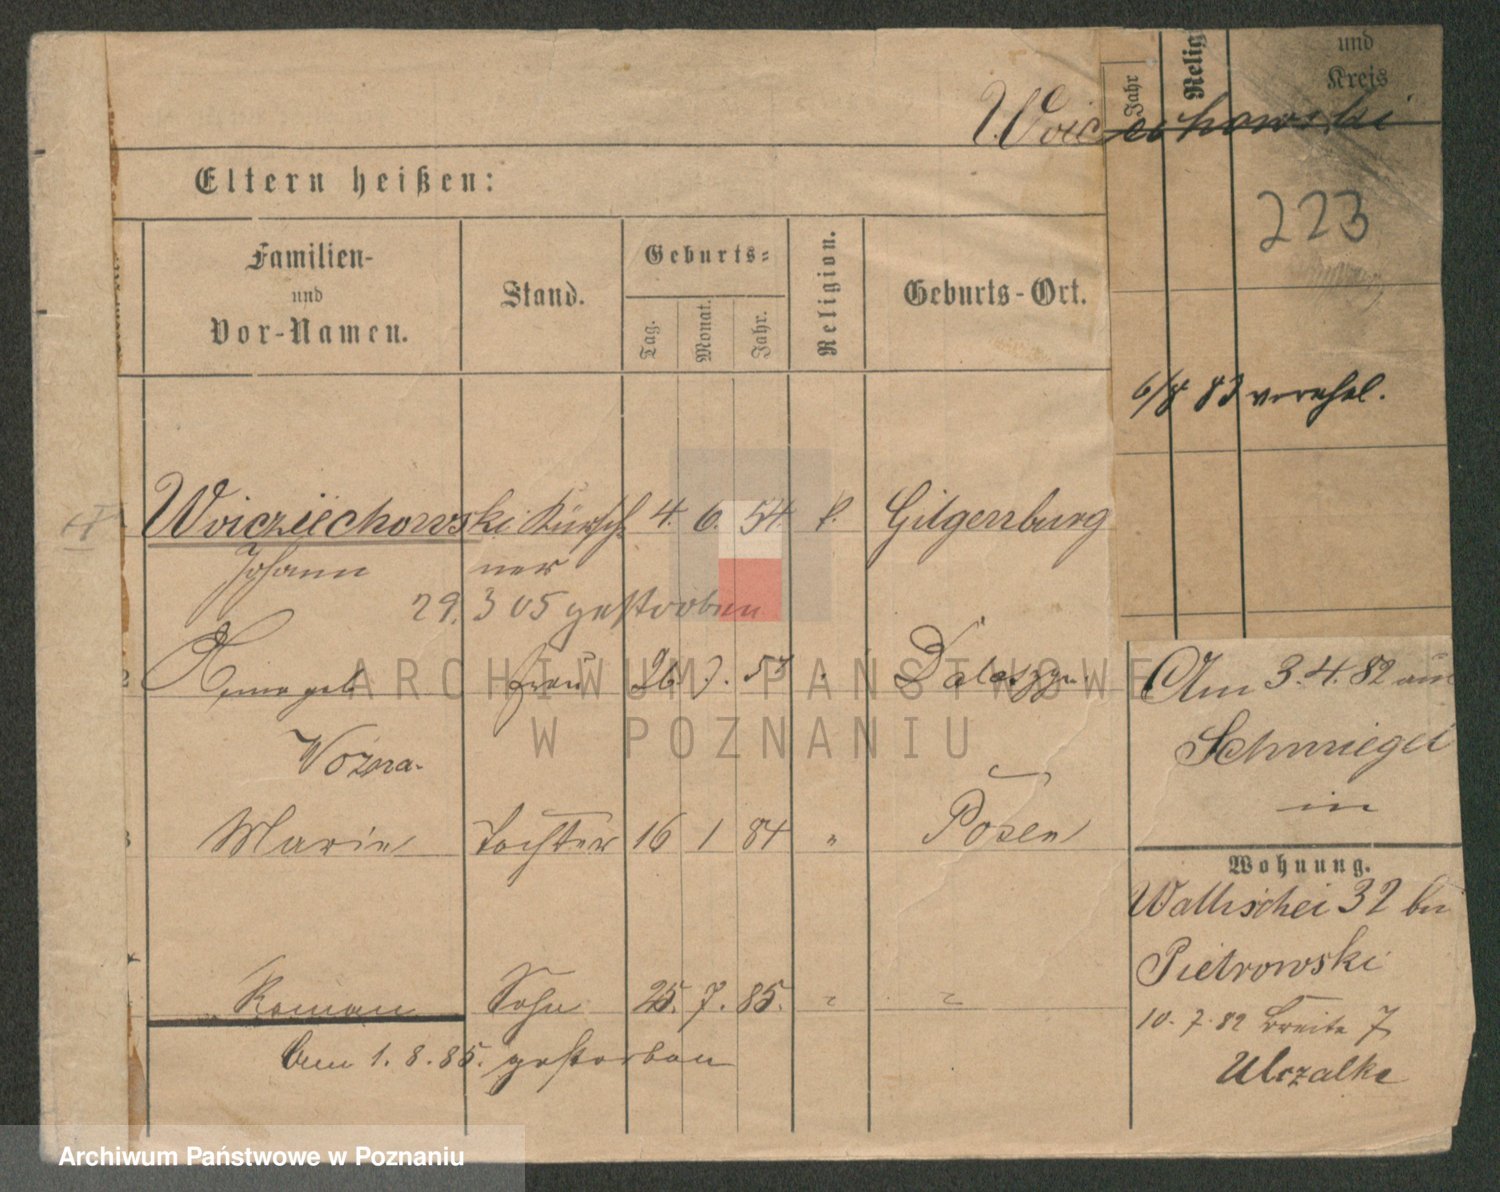 Woiciechowski
und
Kreis
Jahr
Relig
223
Eltern heißen:
Familien-
und
Vor-Namen.
Stand.
Geburts-
Tag.
Monat.
Jahr.
Religion.
Geburts-Ort.
6/8 83 verehel.
Woicziechowski Kürsch 4. 6. 54. k. Gilgenburg
Johann ner
29. 3 05 gestorben
2 Frau 26. 7. 57 "
Wozna.
3 Marie Tochter 16 1 84 " Posen
4 Roman Sohn 25. 7. 85. " "
Am 1. 8. 85. gestorben
Am 3. 4. 82 aus
Schmiegel
in
Wohnung.
Wallischei 32 bei
Pietrowski
10. 7. 82 Breite 7
ARCHIWUM PAŃSTWOWE
W POZNANIU
Archiwum Państwowe w Poznaniu